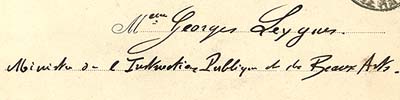 Mme Georges Leygues.
Ministre de l'Instruction Publique et des Beaux Arts.